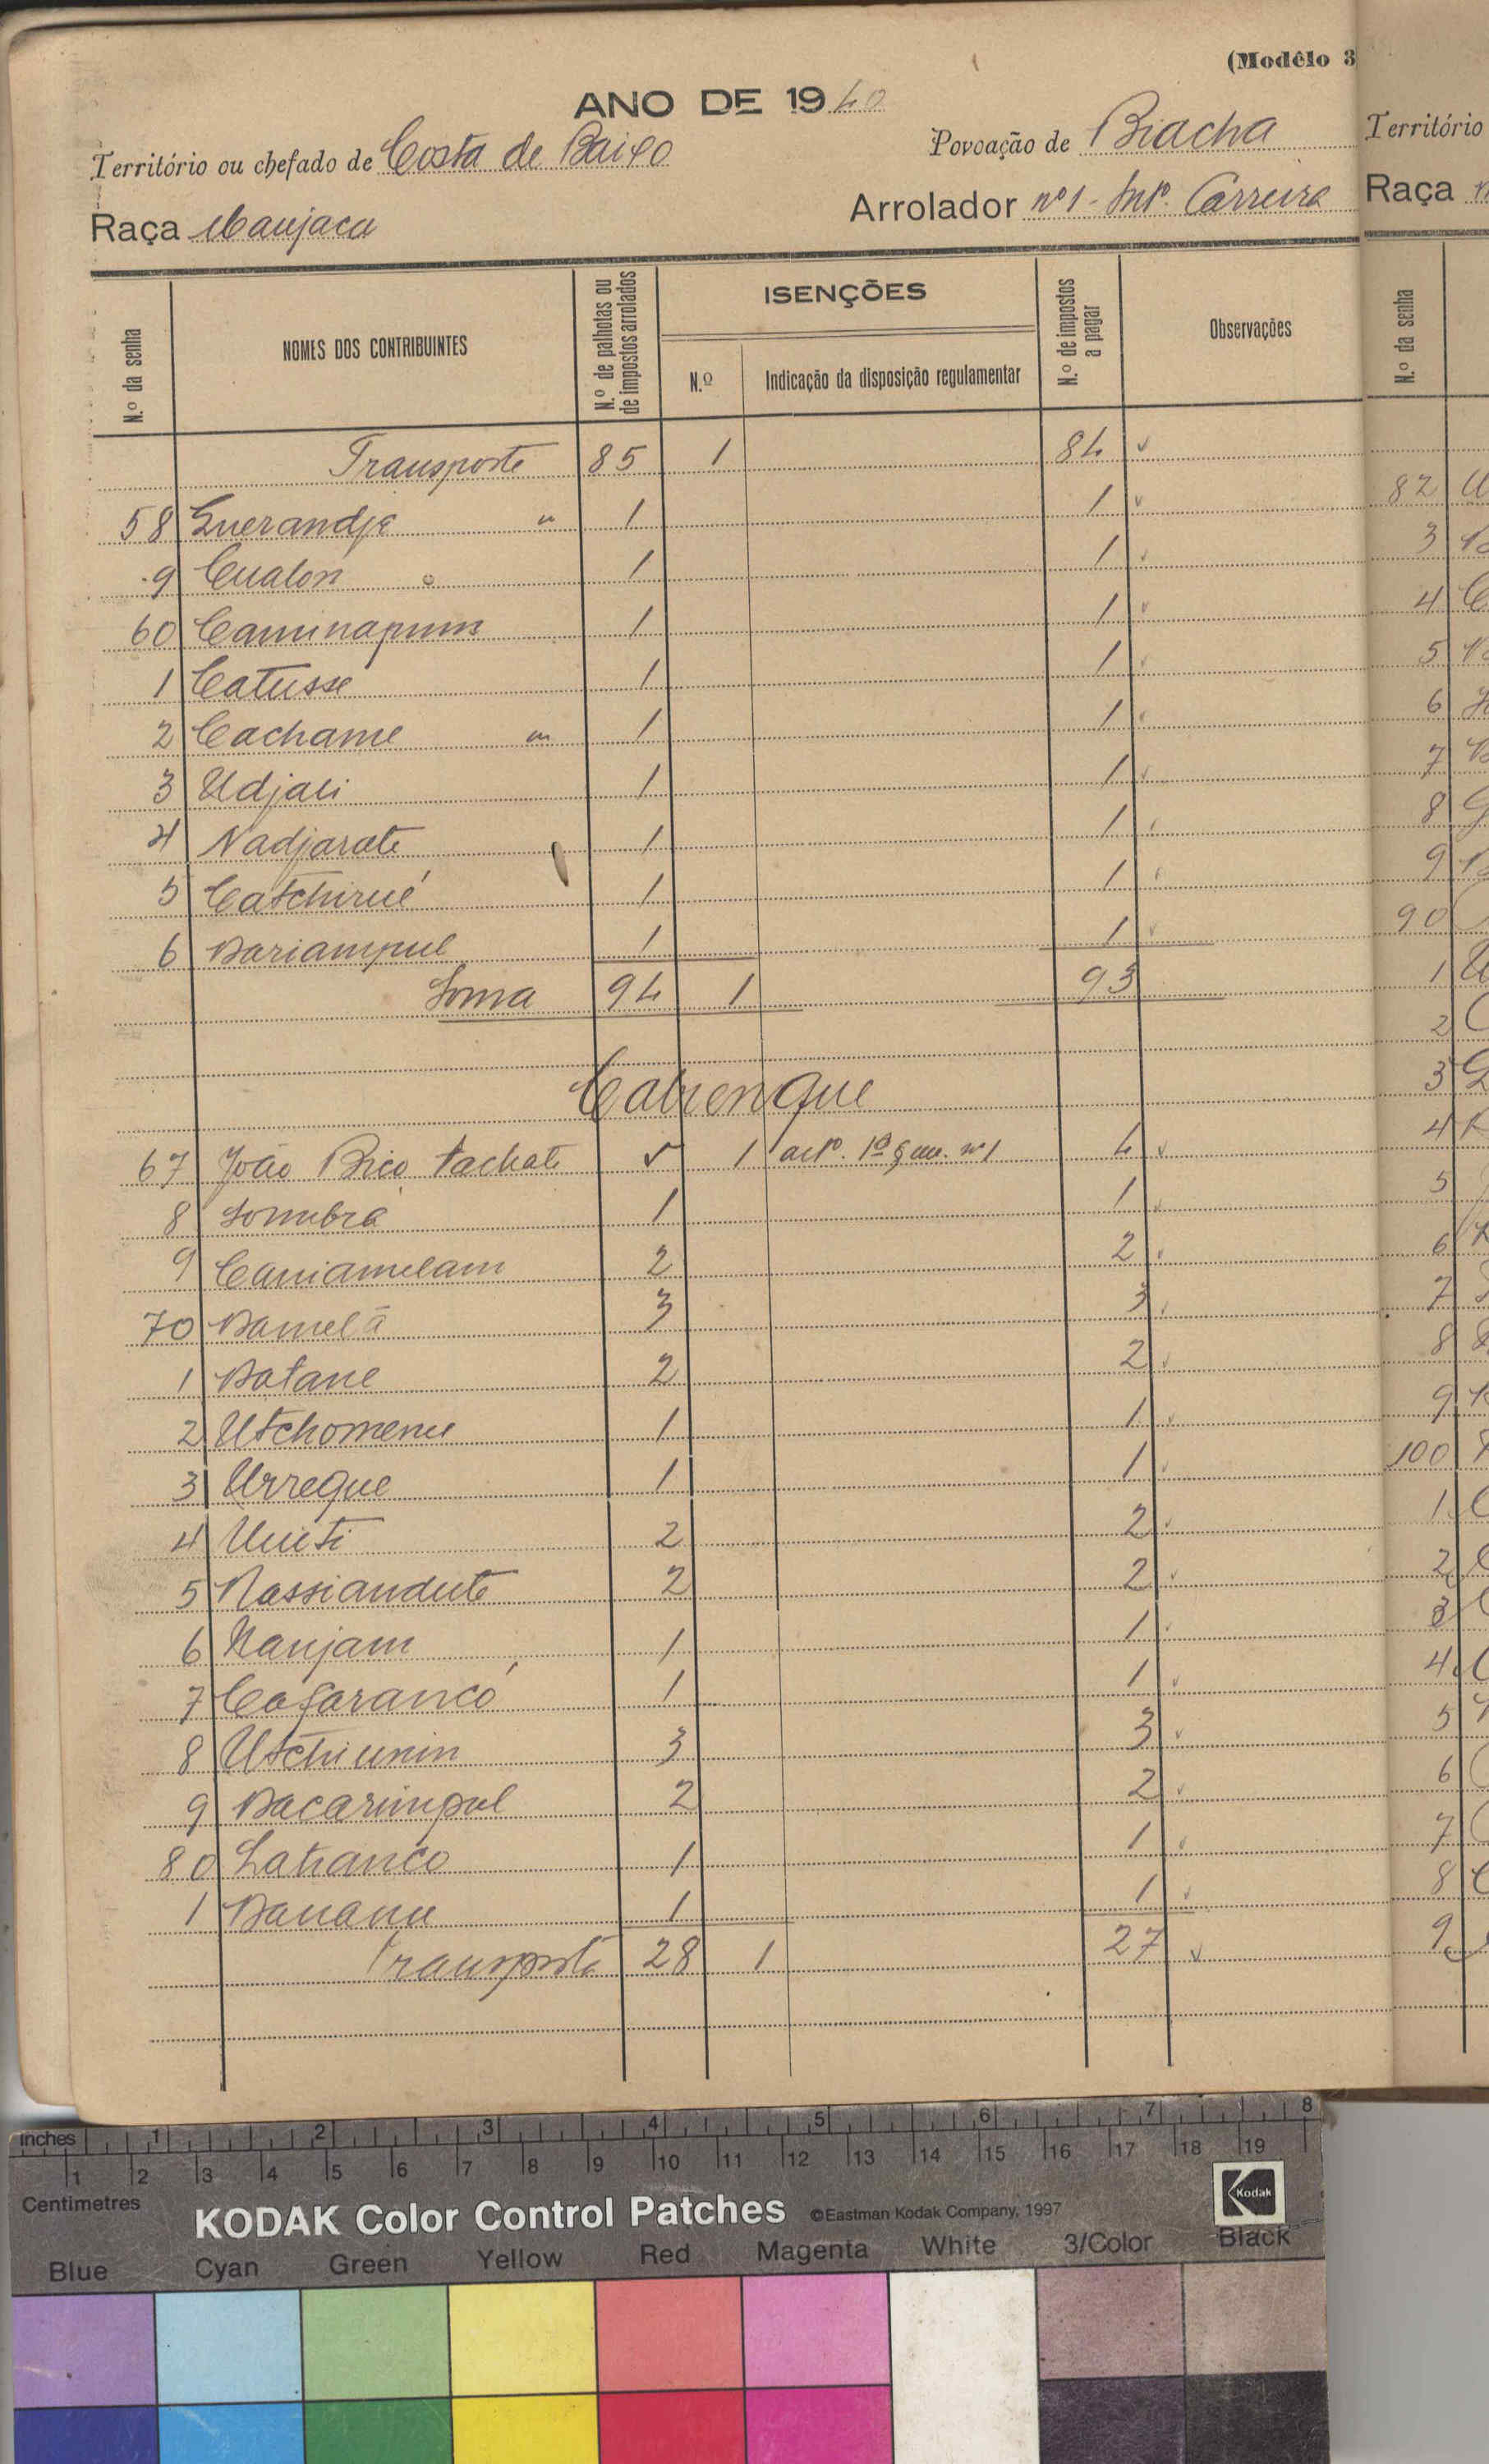 (Modêlo 3
ANO DE 1940
Território ou chefado de Costa de Baixo
Povoação de Biacha
Raça Manjaca
Arrolador nº1 - Antº. Carreira
N.º da senha
NOMES DOS CONTRIBUINTES
N.º de palhotas ou de impostos arrolados
ISENÇÕES
N.º
Indicação da disposição regulamentar
N.º de impostos a pagar
Observações
Transporte 85 1 84
58 Guerandje " 1 1
9 Cualon 1 1
60 Caminapum 1 1
1 Catusse 1 1
2 Cachame " 1 1
3 Udjali 1 1
4 Nadjarate 1 1
5 Catchirué 1 1
6 Bariampul 1 1
Soma 94 1 93
Cabienque
67 João Bico Cachate 5 1 artº. 1º nº1 4
8 Sombra 1 1
9 Caniamelam 2 2
70 Bamelã 3 3
1 Batane 2 2
2 Utchomenu 1 1
3 Urreque 1 1
4 Uneti 2 2
5 Nassiandute 2 2
6 Nanjam 1 1
7 Cafarancó 1 1
8 Utchiunin 3 3
9 Bacarimpul 2 2
80 Latianco 1 1
1 Banana 1 1
Transporte 28 1 27
Território
Raça
N.º da senha
82
3
4
5
6
7
8
9
90
1
2
3
4
5
6
7
8
9
100
1
2
3
4
5
6
7
8
9
inches 1 2 3 4 5 6 7 8
1 2 3 4 5 6 7 8 9 10 11 12 13 14 15 16 17 18 19
Centimetres
KODAK Color Control Patches ©Eastman Kodak Company, 1997
Kodak
Blue Cyan Green Yellow Red Magenta White 3/Color Black